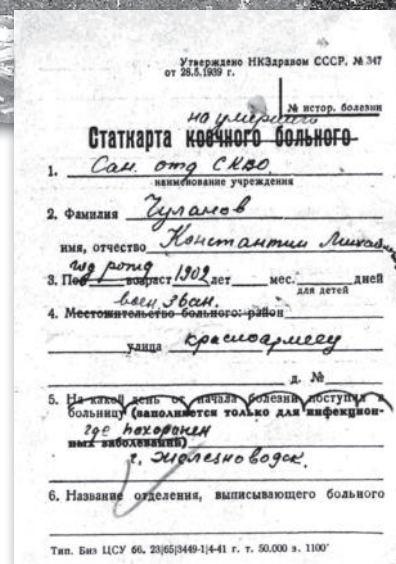 Утверждено НКЗдравом СССР. № 347
от 28.5.1939 г.
№ истор. болезни
на умершего
Статкарта коечного больного
1. Сан. отд СКВО
наименование учреждения
2. Фамилия Чуланов
имя, отчество Константин
год рожд
3. Пол возраст 1902 лет мес. дней
для детей
воен зван.
4. Местожительство больного: район
улица красноармеец
д. №
5. На какой день от начала болезни поступил в
больницу (заполняется только для инфекцион-
где похоронен
ных заболеваний)
г. Железноводск.
6. Название отделения, выписывающего больного
Тип. Биз ЦСУ 66. 23|65|3449-1|4-41 г. т. 50.000 з. 1100